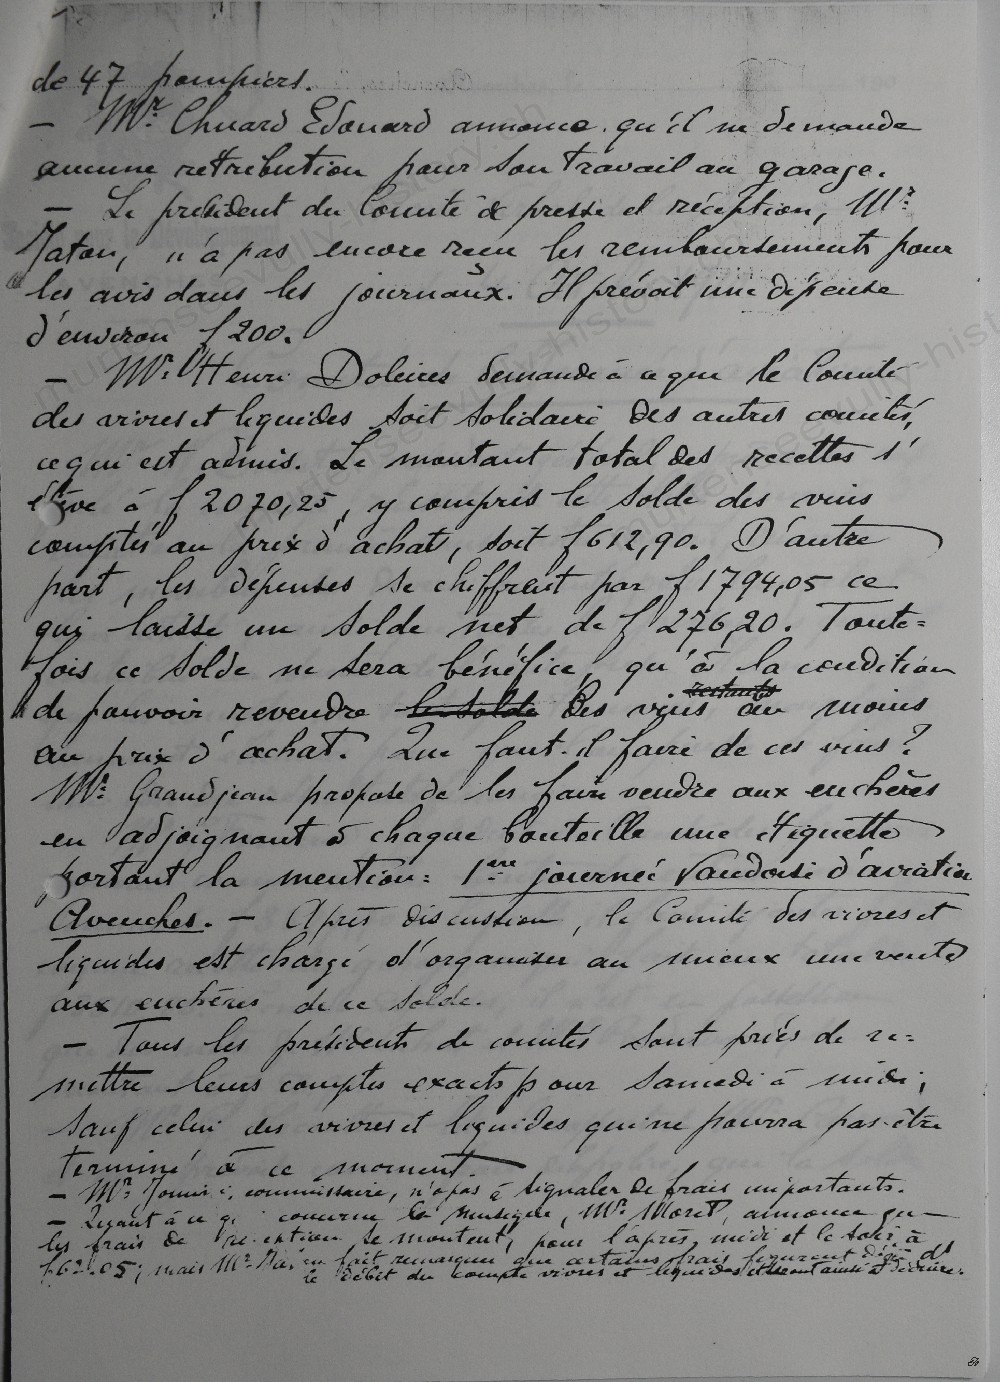 de 47 pompiers.
— Mr. Chuard Edouard annonce qu'il ne demande
aucune rétribution pour son travail au garage.
— Le président du Comité de presse et réception, Mr.
Jaton, n'a pas encore reçu les remboursements pour
les avis dans les journaux. Il prévoit une dépense
d'environ f 200.
— Mr. Henri Doleires demande à ce que le Comité
des vivres et liquides soit solidaire des autres comités,
ce qui est admis. Le montant total des recettes s'
élève à f 2070,25, y compris le solde des vins
comptés au prix d'achat, soit f 612,90. D'autre
part, les dépenses se chiffrent par f 1794,05 ce
qui laisse un solde net de f 276,20. Toute=
fois ce solde ne sera bénéfice, qu'à la condition
restants
de pouvoir revendre le solde des vins au moins
au prix d'achat. Que faut-il faire de ces vins?
Mr. Grandjean propose de les faire vendre aux enchères
en adjoignant à chaque bouteille une étiquette
portant la mention: 1ère journée Vaudoise d'aviation
Avenches. — Après discussion, le Comité des vivres et
liquides est chargé d'organiser au mieux une vente
aux enchères de ce solde.
— Tous les présidents de comités sont priés de re=
mettre leurs comptes exacts pour samedi à midi,
sauf celui des vivres et liquides qui ne pourra pas être
terminé à ce moment.
— Mr. commissaire, n'a pas à signaler de frais importants.
— Quant à ce qui concerne la musique, Mr. Moret, annonce que
les frais de réception se montent, pour l'après midi et le soir, à
f 62.05; mais Mr. fait remarquer que certains frais figurent déjà ds
le débit du compte vivres et liquides et sont ainsi à déduire.